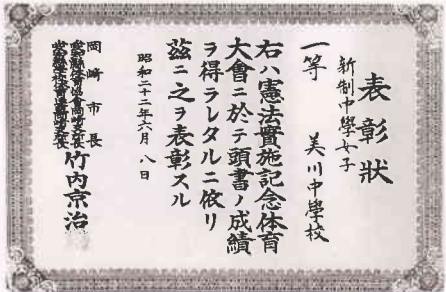 表彰狀
新制中學女子
一等 美川中學校
右ハ憲法實施記念体育
大會ニ於テ頭書ノ成績
ヲ得ラレタルニ依リ
茲ニ之ヲ表彰スル
昭和二十二年六月八日
岡崎市長
竹内京治